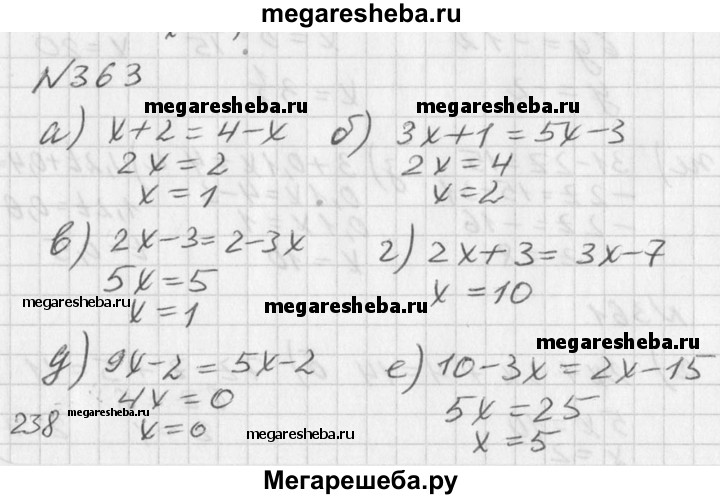 megaresheba.ru
№363
megaresheba.ru megaresheba.ru
а) x+2=4-x б) 3x+1=5x-3
2x=2 2x=4
x=1 x=2
в) 2x-3=2-3x г) 2x+3=3x-7
5x=5 x=10
megaresheba.ru megaresheba.ru
x=1
megaresheba.ru
д) 9x-2=5x-2 е) 10-3x=2x-15
4x=0 5x=25
238 megaresheba.ru x=0 megaresheba.ru x=5
Мегарешеба.ру